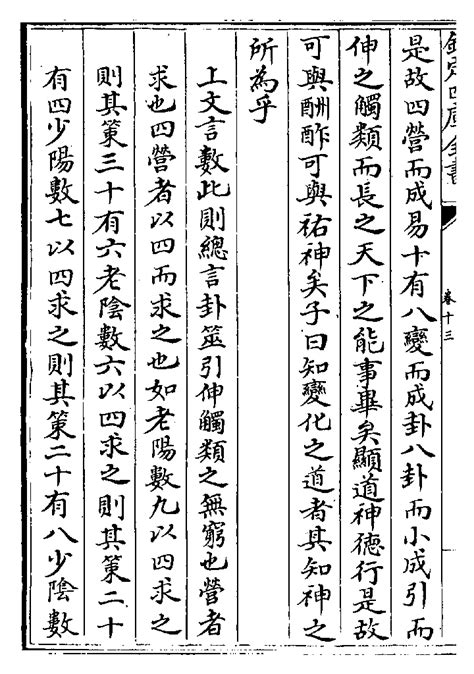 欽定四庫全書
卷十三
是故四營而成易十有八變而成卦八卦而小成引而
伸之觸類而長之天下之能事畢矣顯道神德行是故
可與酬酢可與祐神矣子曰知變化之道者其知神之
所為乎
上文言數此則總言卦筮引伸觸類之無窮也營者
求也四營者以四而求之也如老陽數九以四求之
則其策三十有六老陰數六以四求之則其策二十
有四少陽數七以四求之則其策二十有八少陰數